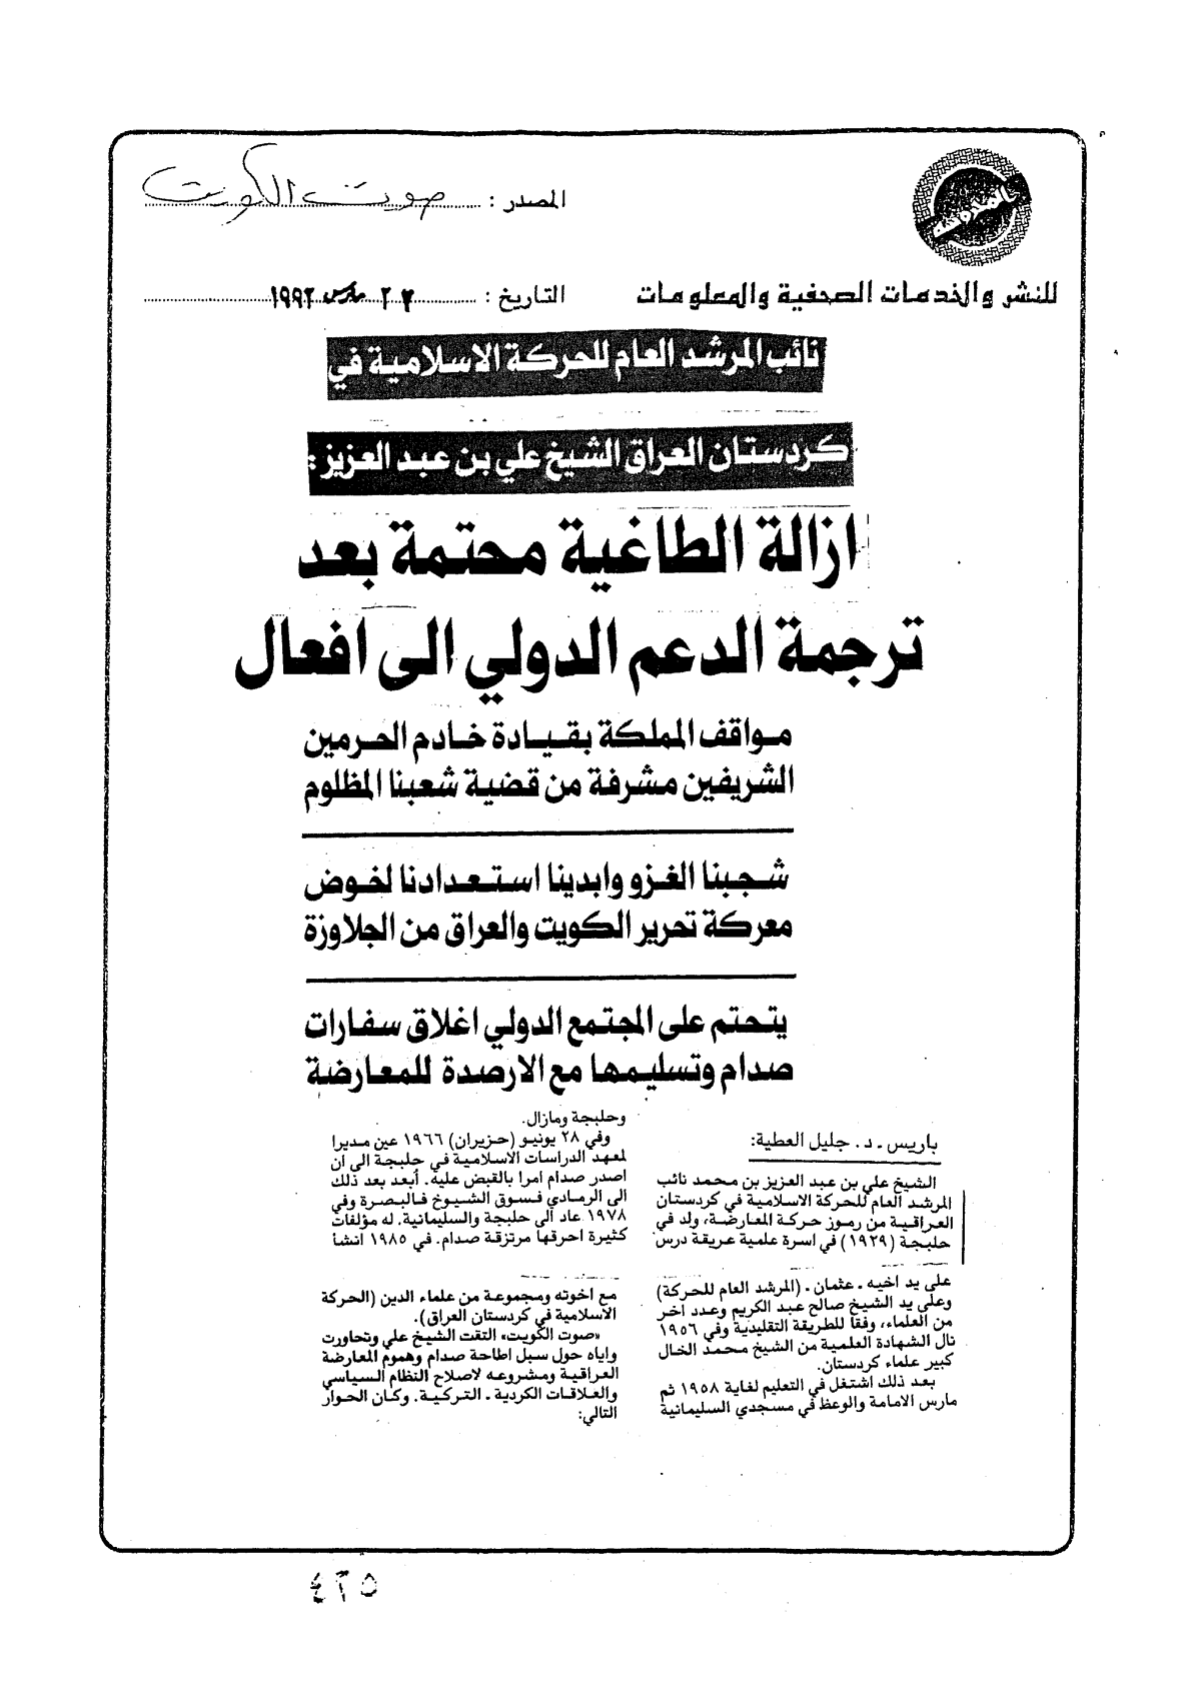 المصدر : صوت الكويت
للنشر والخدمات الصحفية والمعلومات
التاريخ : ٢٢ مارس ١٩٩٢
نائب المرشد العام للحركة الاسلامية في
كردستان العراق الشيخ علي بن عبد العزيز :
ازالة الطاغية محتمة بعد
ترجمة الدعم الدولي الى افعال
مواقف المملكة بقيادة خادم الحرمين
الشريفين مشرفة من قضية شعبنا المظلوم
شجبنا الغزو وابدينا استعدادنا لخوض
معركة تحرير الكويت والعراق من الجلاوزة
يتحتم على المجتمع الدولي اغلاق سفارات
صدام وتسليمها مع الارصدة للمعارضة
باريس ـ د. جليل العطية:
الشيخ علي بن عبد العزيز بن محمد نائب
المرشد العام للحركة الاسلامية في كردستان
العراقية من رموز حركة المعارضة، ولد في
حلبجة (١٩٢٩) في اسرة علمية عريقة درس
على يد اخيه ـ عثمان ـ (المرشد العام للحركة)
وعلى يد الشيخ صالح عبد الكريم وعدد اخر
من العلماء، وفقا للطريقة التقليدية وفي ١٩٥٦
نال الشهادة العلمية من الشيخ محمد الخال
كبير علماء كردستان.
بعد ذلك اشتغل في التعليم لغاية ١٩٥٨ ثم
مارس الامامة والوعظ في مسجدي السليمانية
وحلبجة ومازال.
وفي ٢٨ يونيو (حزيران) ١٩٦٦ عين مديرا
لمعهد الدراسات الاسلامية في حلبجة الى ان
اصدر صدام امرا بالقبض عليه. أبعد بعد ذلك
الى الرمادي فسوق الشيوخ فالبصرة وفي
١٩٧٨ عاد الى حلبجة والسليمانية. له مؤلفات
كثيرة احرقها مرتزقة صدام. في ١٩٨٥ انشأ
مع اخوته ومجموعة من علماء الدين (الحركة
الاسلامية في كردستان العراق).
«صوت الكويت» التقت الشيخ علي وتحاورت
واياه حول سبل اطاحة صدام وهموم المعارضة
العراقية ومشروعه لاصلاح النظام السياسي
والعلاقات الكردية ـ التركية. وكان الحوار
التالي:
٤٢٥